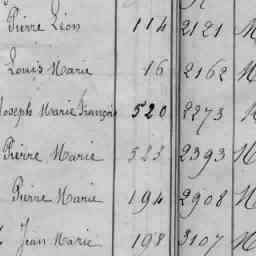 Pierre Léon 114 2121 M
Louis Marie 16 2162 M
Joseph Marie François 520 2273
Pierre Marie 523 2393 M
Pierre Marie 194 2908 M
Jean Marie 198 3107 M